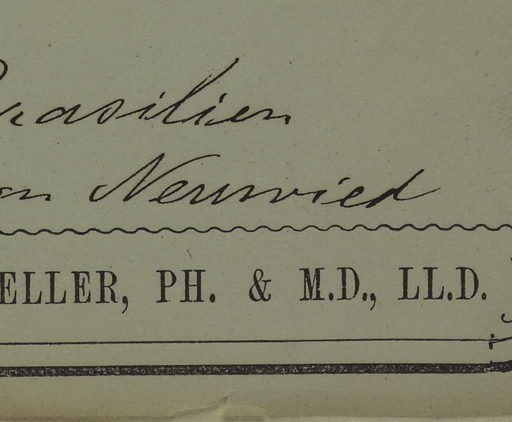 Brasilien
von Neuwied
ELLER, PH. & M.D., LL.D.